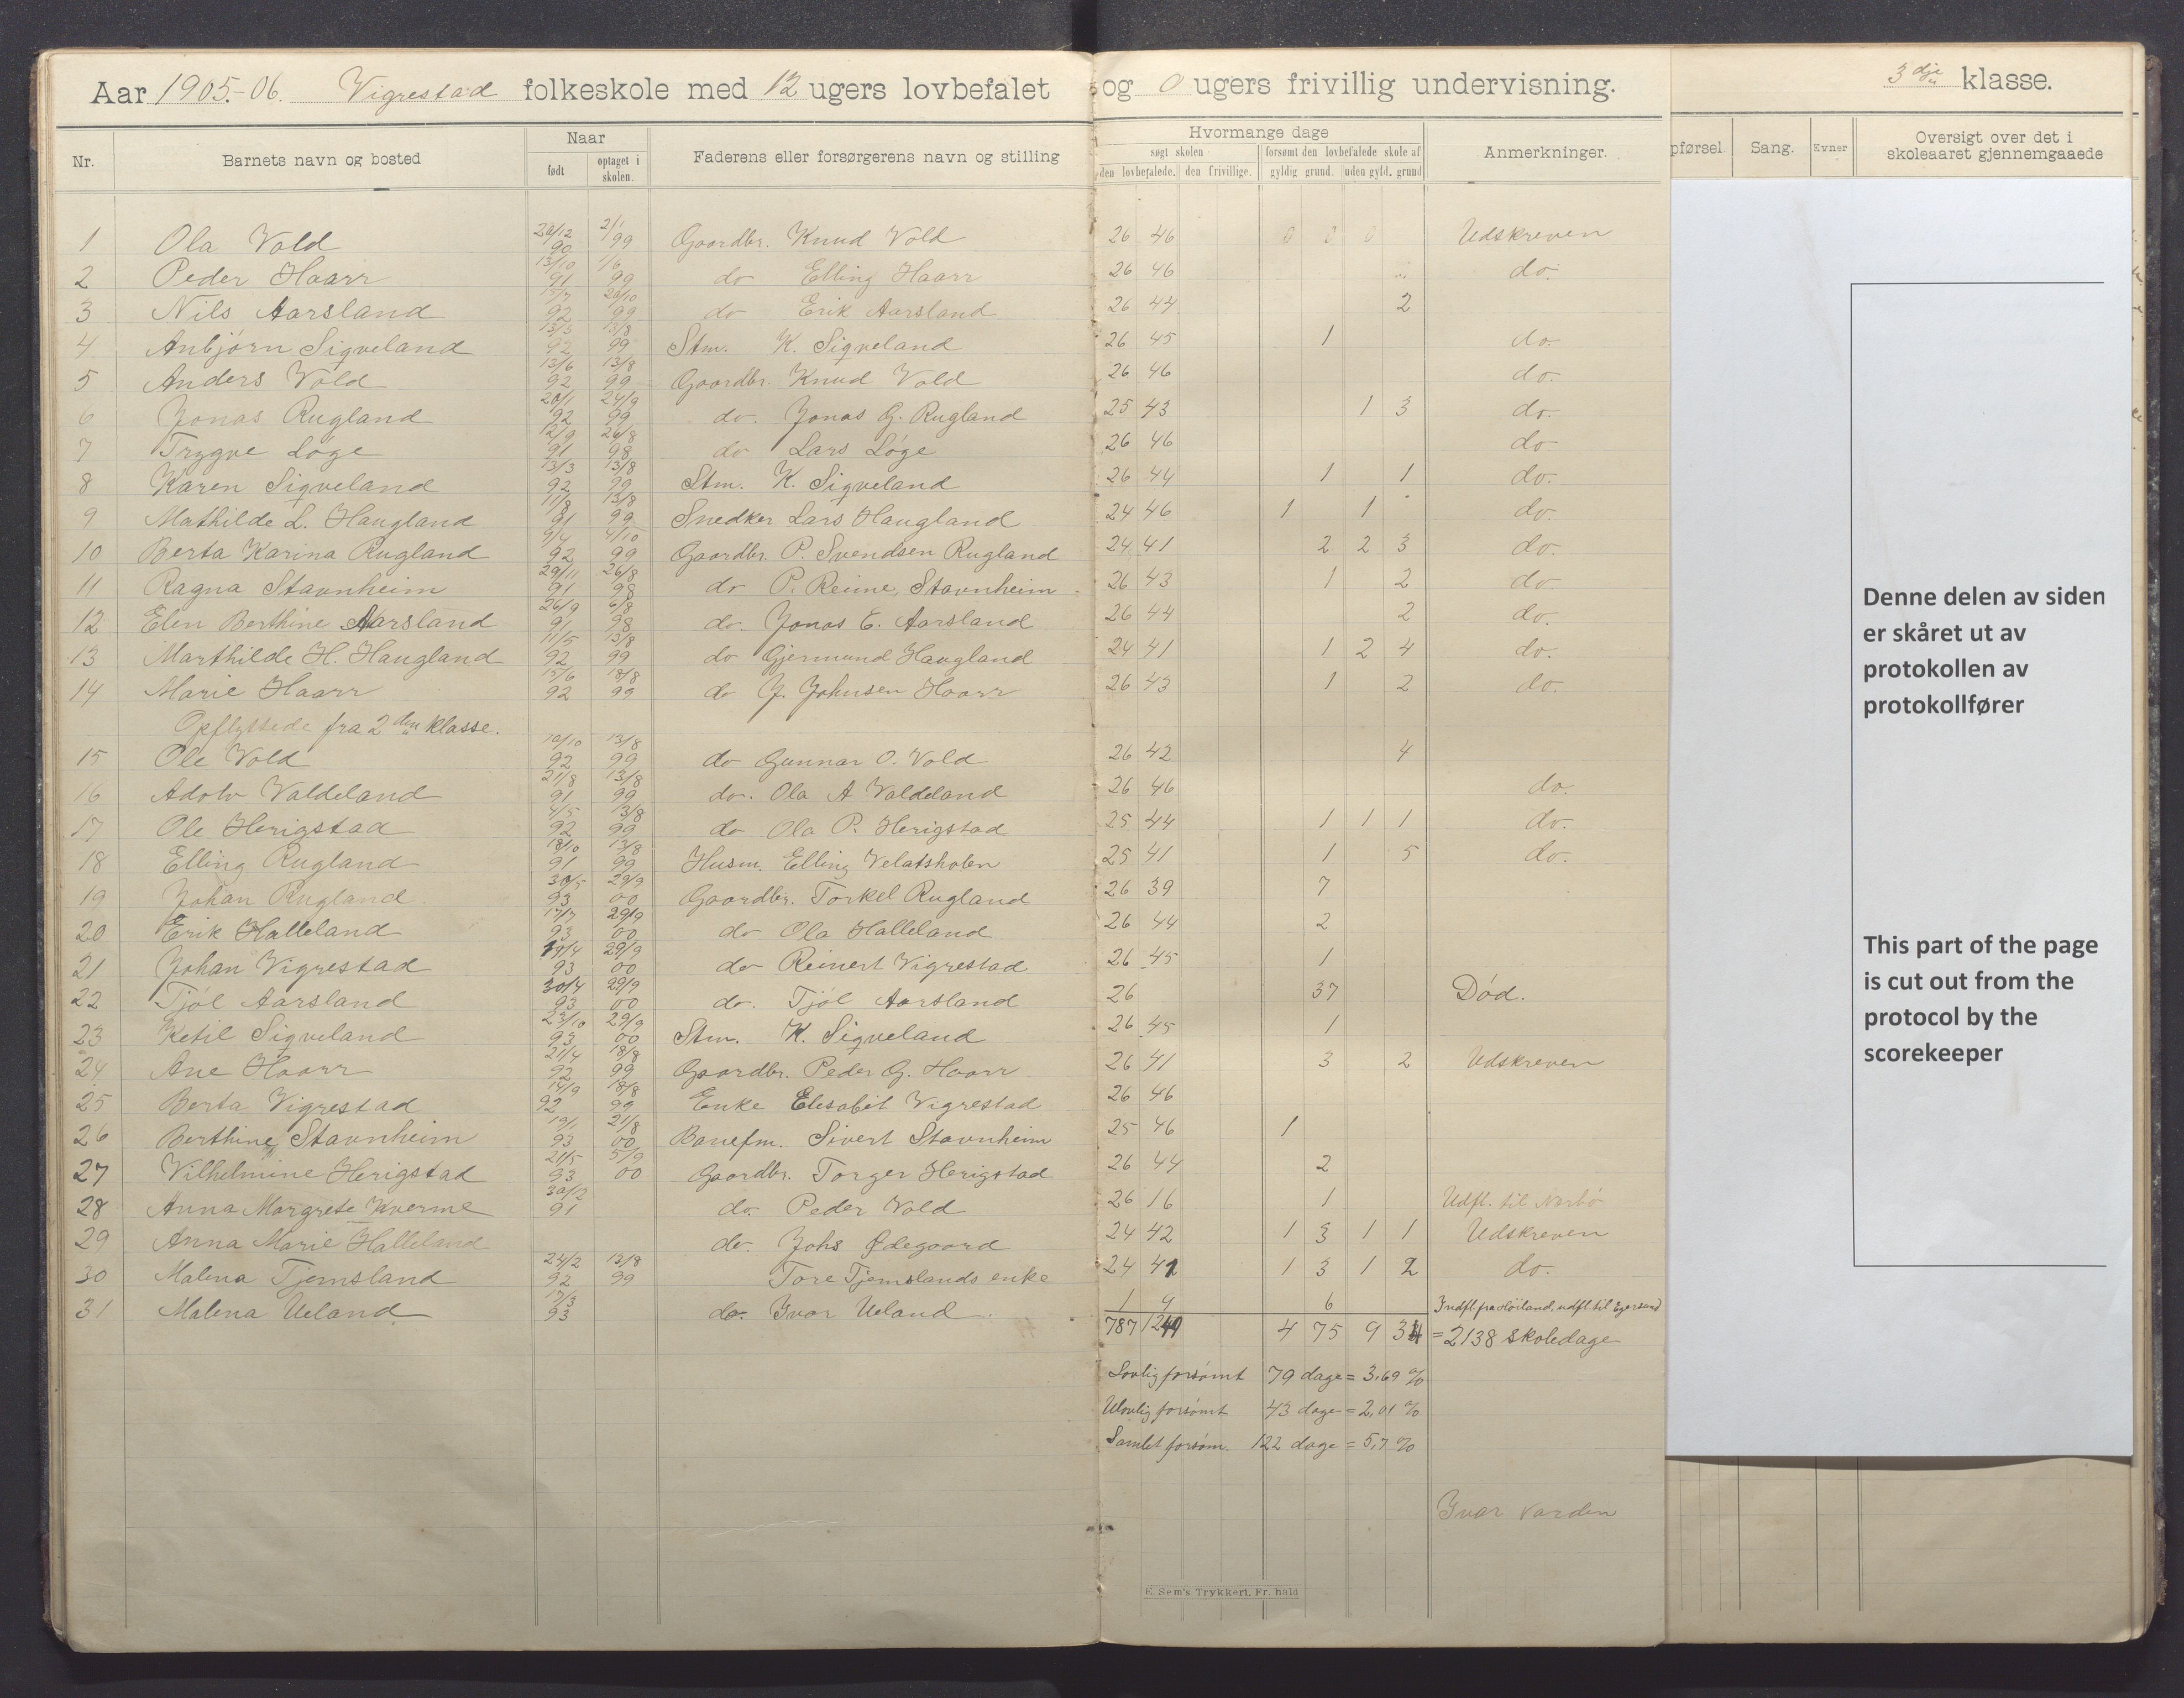 Aar 1905.-06. Vigrestad folkeskole med 12 ugers lovbefalet og 0 ugers frivillig undervisning. 3dje klasse.
Nr. Barnets navn og bosted Naar født optaget i skolen. Faderens eller forsørgerens navn og stilling Hvormange dage søgt skolen den lovbefalede. den frivillige. forsømt den lovbefalede skole af gyldig grund. uden gyld. grund Anmerkninger. pførsel Sang. Evner Oversigt over det i skoleaaret gjennemgaaede
1 Ola Vold 20/12 90 2/1 99 Gaardbr. Knud Vold 26 46 0 0 0 Udskreven
2 Peder Haarr 13/10 91 1/6 99 do Elling Haarr 26 46 do.
3 Nils Aarsland 15/7 92 20/10 99 do Erik Aarsland 26 44 2
4 Anbjørn Sigveland 13/3 92 13/8 99 Stm. K. Sigveland 26 45 1 do.
5 Anders Vold 13/6 92 13/8 99 Gaardbr. Knud Vold 26 46 do.
6 Jonas Rugland 20/1 92 24/9 99 do. Jonas G. Rugland 25 43 1 3 do.
7 Trygve Løge 12/9 91 26/8 98 do Lars Løge 26 46 do
8 Karen Sigveland 13/3 92 13/8 99 Stm. K. Sigveland 26 44 1 1 do.
9 Mathilde L. Haugland 11/8 91 13/8 99 Snedker Lars Haugland 24 46 1 1 do.
10 Berta Karina Rugland 9/4 92 4/10 99 Gaardbr. P. Svendsen Rugland 24 41 2 2 3 do.
11 Ragna Stavnheim 29/11 91 26/8 98 do P. Reime, Stavnheim 26 43 1 2 do
12 Elen Berthine Aarsland 26/9 91 6/8 98 do. Jonas E. Aarsland 26 44 2 do.
13 Marthilde H. Haugland 11/5 92 13/8 99 do Gjermund Haugland 24 41 1 2 4 do.
14 Marie Haarr 15/6 92 18/8 99 do J. Johnsen Haarr 26 43 1 2 do.
Opflyttede fra 2den klasse.
15 Ole Vold 10/10 92 13/8 99 do Gunnar O. Vold 26 42 4
16 Adolv Valdeland 21/8 91 13/8 99 do. Ola A Valdeland 26 46 do.
17 Ole Herigstad 4/5 92 13/8 99 do Ola P. Herigstad 25 44 1 1 1 do.
18 Elling Rugland 18/10 91 13/8 99 Husm. Elling Velatsholen 25 41 1 5 do.
19 Johan Rugland 30/5 93 29/9 00 Gaardbr. Torkel Rugland 26 39 7
20 Erik Halleland 17/7 93 29/9 00 do Ola Halleland 26 44 2
21 Johan Vigrestad 19/4 93 29/9 00 do Reinert Vigrestad 26 45 1
22 Tjøl Aarsland 30/4 93 29/9 00 do. Tjøl Aarsland 26 37 Død.
23 Ketil Sigveland 23/10 93 29/9 00 Stm. K. Sigveland 26 45 1
24 Ane Haarr 21/4 92 18/8 99 Gaardbr. Peder G. Haarr 26 41 3 2 Udskreven
25 Berta Vigrestad 14/9 92 18/8 99 Enke Elisabet Vigrestad 26 46
26 Berthine Stavnheim 19/1 93 21/8 00 Banefm. Sivert Stavnheim 25 46 1
27 Vilhelmine Herigstad 21/5 93 5/9 00 Gaardbr. Torger Herigstad 26 44 2
28 Anna Margrete Kverme 30/12 91 do. Peder Vold 26 16 1 Udfl. til Nærbø
29 Anna Marie Halleland do. Johs Ødegaard 24 42 1 3 1 1 Udskreven
30 Malena Tjemsland 24/2 92 13/8 99 Tore Tjemslands enke 24 41 1 3 1 2 do.
31 Malena Ueland 17/3 93 do. Ivar Ueland. 1 9 6 Indfl. fra Høiland, udfl. til Egersund
787 1249 4 75 9 34 = 2138 skoledage
Lovlig forsømt 79 dage = 3,69 %
Ulovlig forsømt 43 dage = 2,01 %
Samlet forsøm. 122 dage = 5,7 %
Ivar Varden
E. Sem's Trykkeri, Fr. hald
Denne delen av siden
er skåret ut av
protokollen av
protokollfører
This part of the page
is cut out from the
protocol by the
scorekeeper